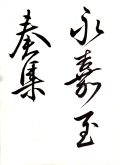 永嘉玉
奏集